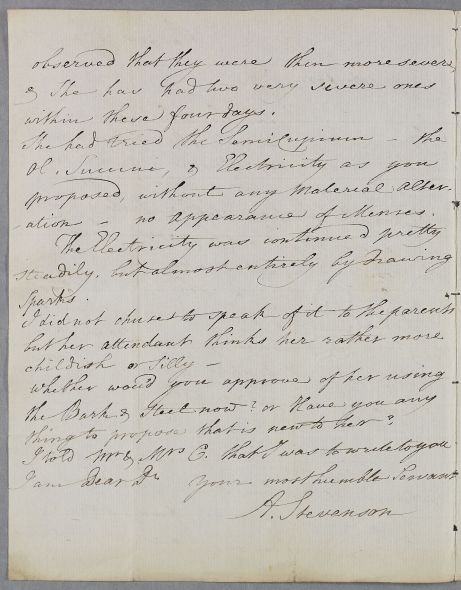 observed that they were then more severe,
& She has had two very severe ones
within these four days.
She had tried the Semicupium - the
Ol. Succini, & Electricity as you
proposed, without any material alter-
-ation - no appearance of Menses.
The Electricity was continued pretty
steadily, but almost entirely by drawing
Sparks.
I did not chuse to speak of it to the parents
but her attendant thinks her rather more
childish or Silly -
whether would you approve of her using
the Bark & Steel now? or Have you any
thing to propose that is new to her?
I told Mr & Mrs C. that I was to write to you
I am Dear Dr your most humble Servant
A. Stevanson